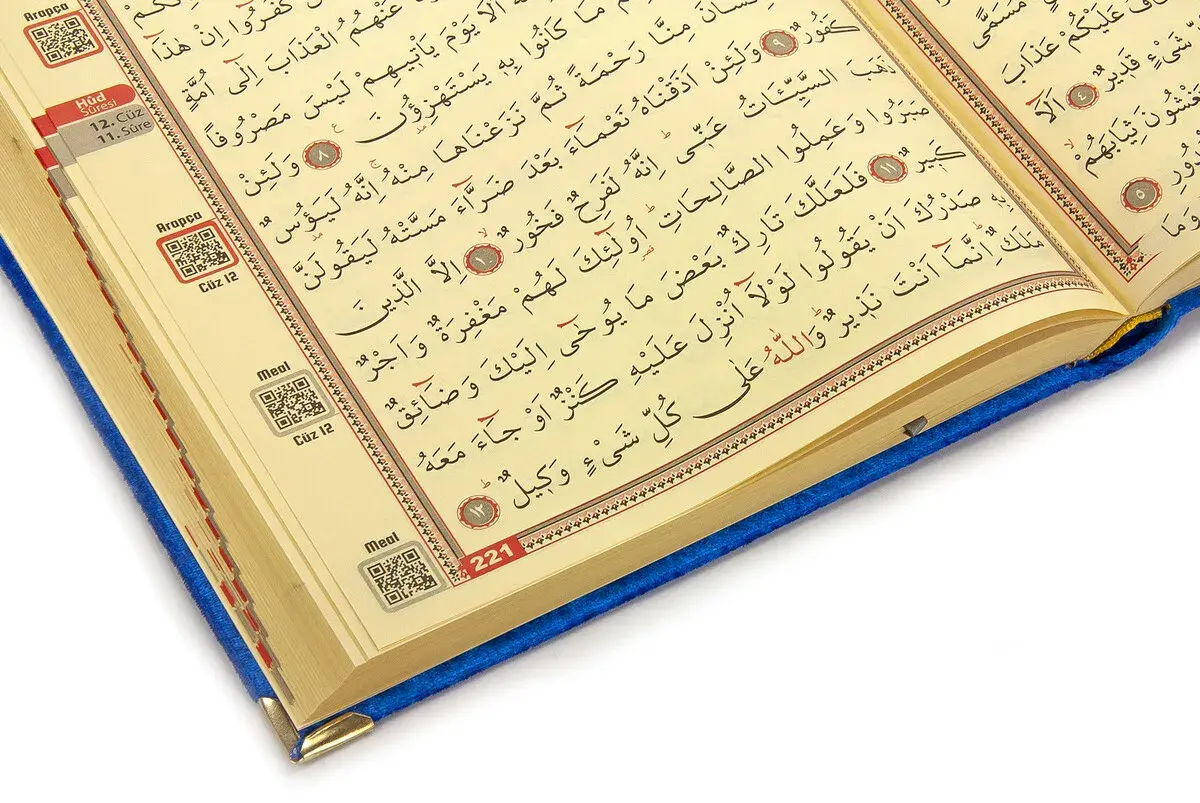 مُسَمًّى
عَلَيْكُمْ عَذَابَ
شَيْءٍ قَد۪يرٌ ٤ اَلَٓا
ثِيَابَهُمْ
٥
كَفَرُٓوا اِنْ هٰذَٓا
عَنْهُمُ الْعَذَابَ اِلٰٓى اُمَّةٍ
اَلَا يَوْمَ يَأْت۪يهِمْ لَيْسَ مَصْرُوفاً
مَا كَانُوا بِه۪ يَسْتَهْزِؤُنَ ٨ وَلَئِنْ
مِنَّا رَحْمَةً ثُمَّ نَزَعْنَاهَا مِنْهُ اِنَّهُ لَيَؤُسٌ
كَفُورٌ ٩ وَلَئِنْ اَذَقْنَاهُ نَعْمَٓاءَ بَعْدَ ضَرَّٓاءَ مَسَّتْهُ لَيَقُولَنَّ
ذَهَبَ السَّيِّئَاتُ عَنّ۪ى اِنَّهُ لَفَرِحٌ فَخُورٌ ١٠ اِلَّا الَّذ۪ينَ
صَبَرُوا وَعَمِلُوا الصَّالِحَاتِ اُو۬لٰٓئِكَ لَهُمْ مَغْفِرَةٌ وَاَجْرٌ
كَب۪يرٌ ١١ فَلَعَلَّكَ تَارِكٌ بَعْضَ مَا يُوحٰٓى اِلَيْكَ وَضَٓائِقٌ
بِه۪ صَدْرُكَ اَنْ يَقُولُوا لَوْلَٓا اُنْزِلَ عَلَيْهِ كَنْزٌ اَوْ جَٓاءَ مَعَهُ
مَلَكٌ اِنَّمَٓا اَنْتَ نَذ۪يرٌ وَاللّٰهُ عَلٰى كُلِّ شَىْءٍ وَك۪يلٌ ١٢
221
Arapça
Hûd
Sûresi
12. Cüz
11. Sûre
Arapça
Cüz 12
Meal
Cüz 12
Meal